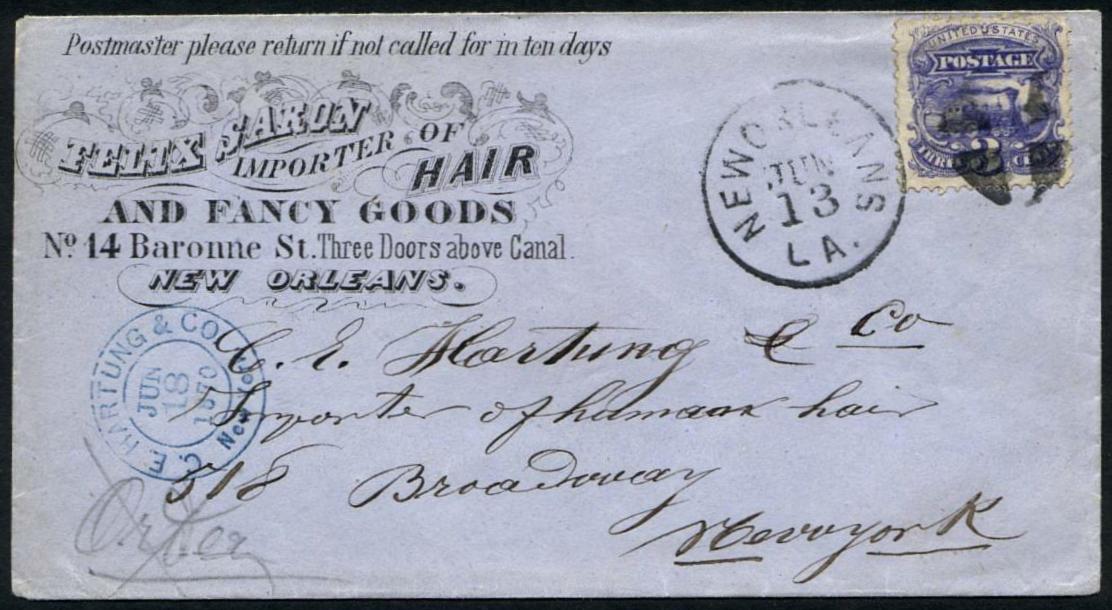 Postmaster please return if not called for in ten days
FELIX SAKON
IMPORTER OF
HAIR
AND FANCY GOODS
No. 14 Baronne St. Three Doors above Canal.
NEW ORLEANS.
NEW ORLEANS
JUN
13
LA.
UNITED STATES
POSTAGE
3
THREE CENTS
C. E. HARTUNG & CO.
New York
JUN
18
1870
C. E. Hartung & Co
Importer of humaan hair
518 Broadway
New york
Order